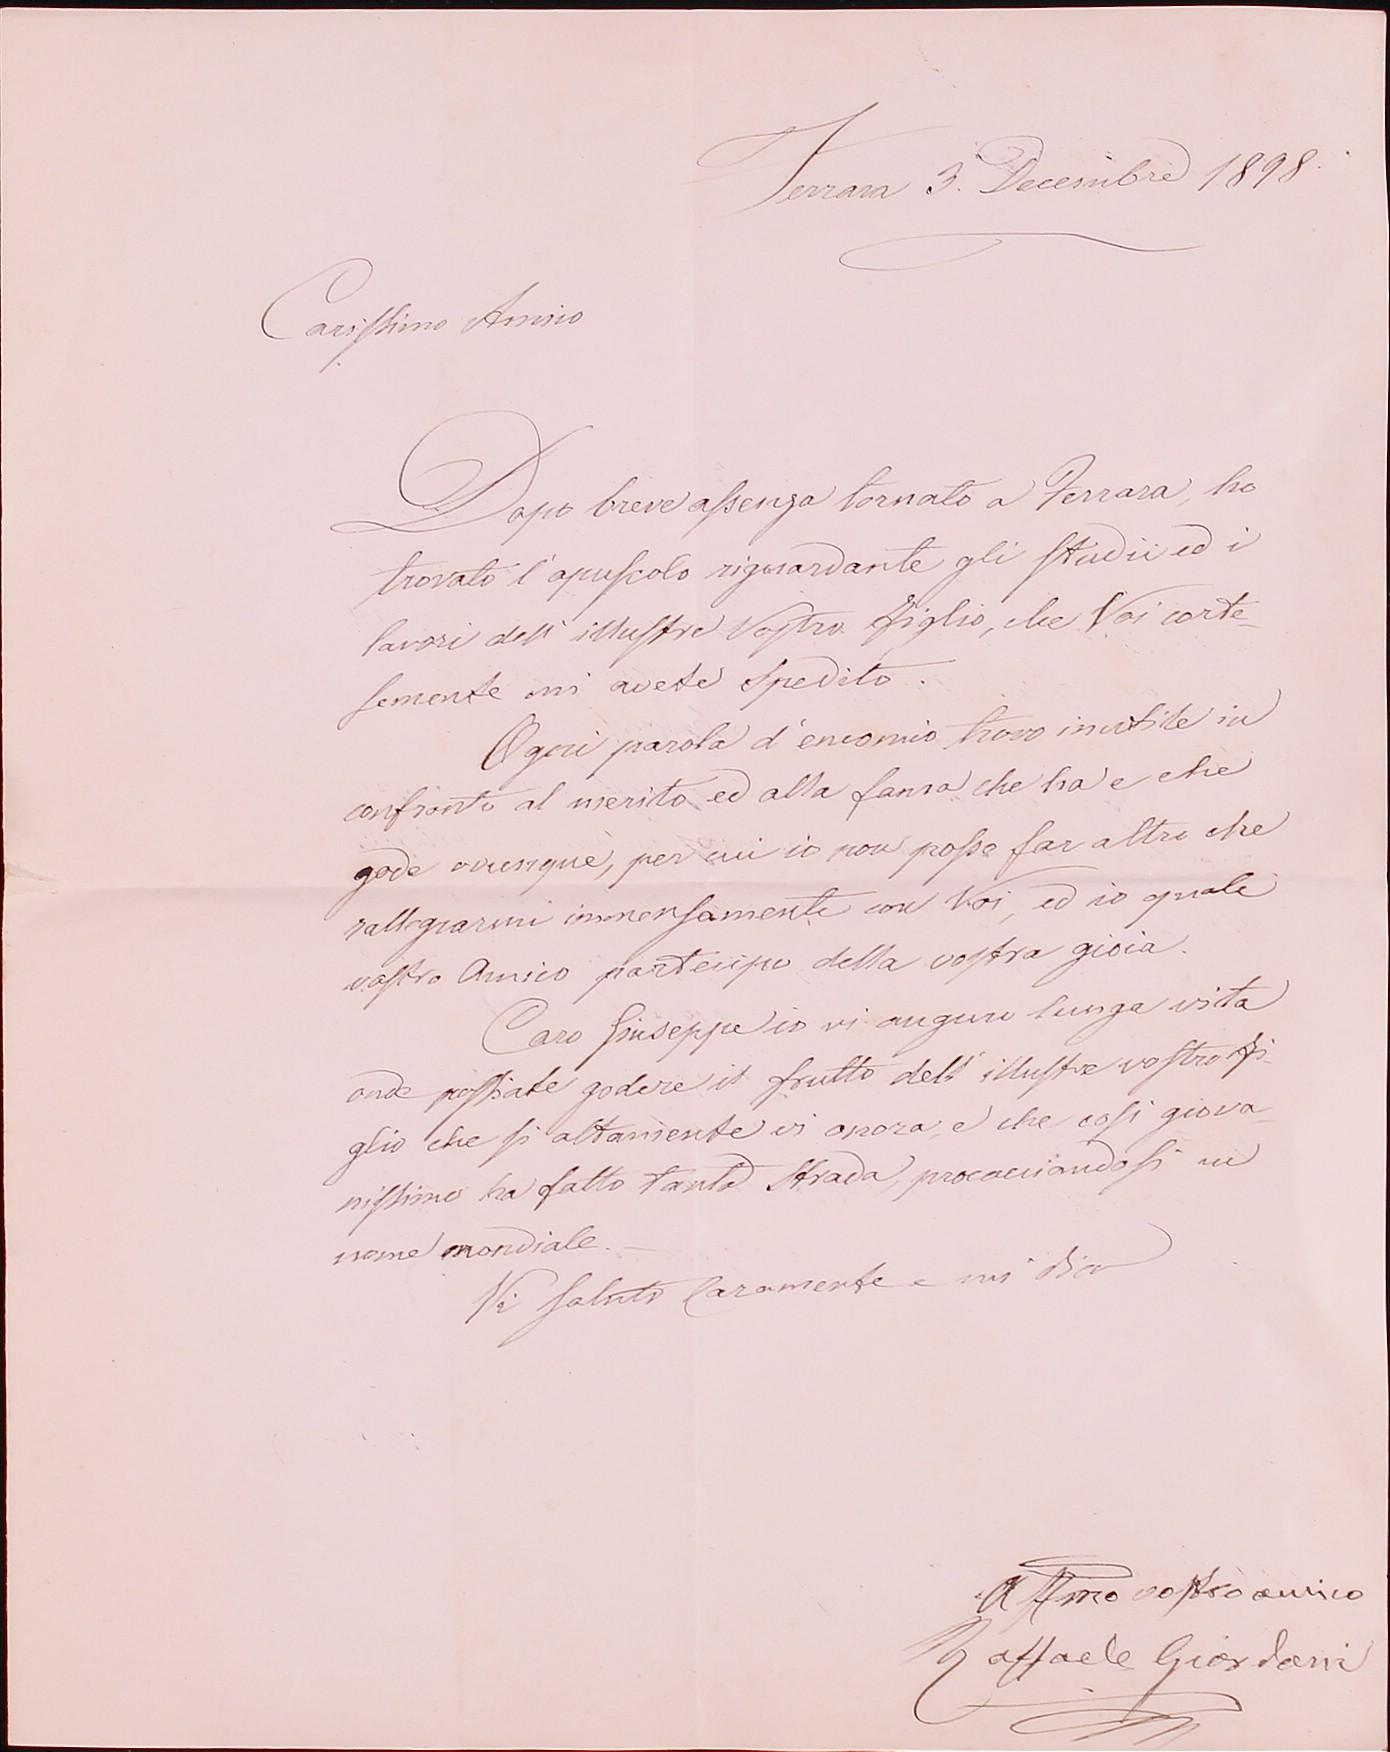 Ferrara 3. Decembre 1898.
Carissimo Amico
Dopo breve assenza tornato a Ferrara, ho
trovato l'apuscolo riguardante gli studii ed i
lavori dell'illustre Vostro figlio, che Voi corte-
semente mi avete spedito.
Ogni parola d'encomio trovo inutile in
confronto al merito ed alla fama che ha e che
gode ovunque, per cui io non posso far altro che
rallegrarmi immensamente con Voi, ed io quale
vostro Amico partecipo della vostra gioia.
Caro Giuseppe io vi auguro lunga vita
onde possiate godere il frutto dell'illustre vostro fi-
glio che si altamente vi onora, e che così giova-
nissimo ha fatto tanta strada, procacciandosi un
nome mondiale.
Vi saluto caramente e mi dico
Affmo vostro amico
Raffaele Giordani